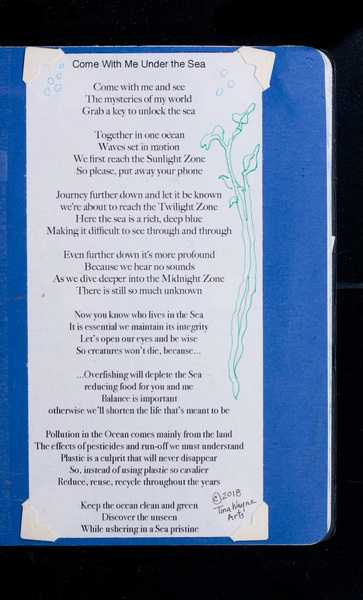 Come With Me Under the Sea
Come with me and see
The mysteries of my world
Grab a key to unlock the sea
Together in one ocean
Waves set in motion
We first reach the Sunlight Zone
So please, put away your phone
Journey further down and let it be known
we're about to reach the Twilight Zone
Here the sea is a rich, deep blue
Making it difficult to see through and through
Even further down it's more profound
Because we hear no sounds
As we dive deeper into the Midnight Zone
There is still so much unknown
Now you know who lives in the Sea
It is essential we maintain its integrity
Let's open our eyes and be wise
So creatures won't die, because...
...Overfishing will deplete the Sea
reducing food for you and me
Balance is important
otherwise we'll shorten the life that's meant to be
Pollution in the Ocean comes mainly from the land
The effects of pesticides and run-off we must understand
Plastic is a culprit that will never disappear
So, instead of using plastic so cavalier
Reduce, reuse, recycle throughout the years
Keep the ocean clean and green
Discover the unseen
While ushering in a Sea pristine
©2018
Tina Wayne
Arts